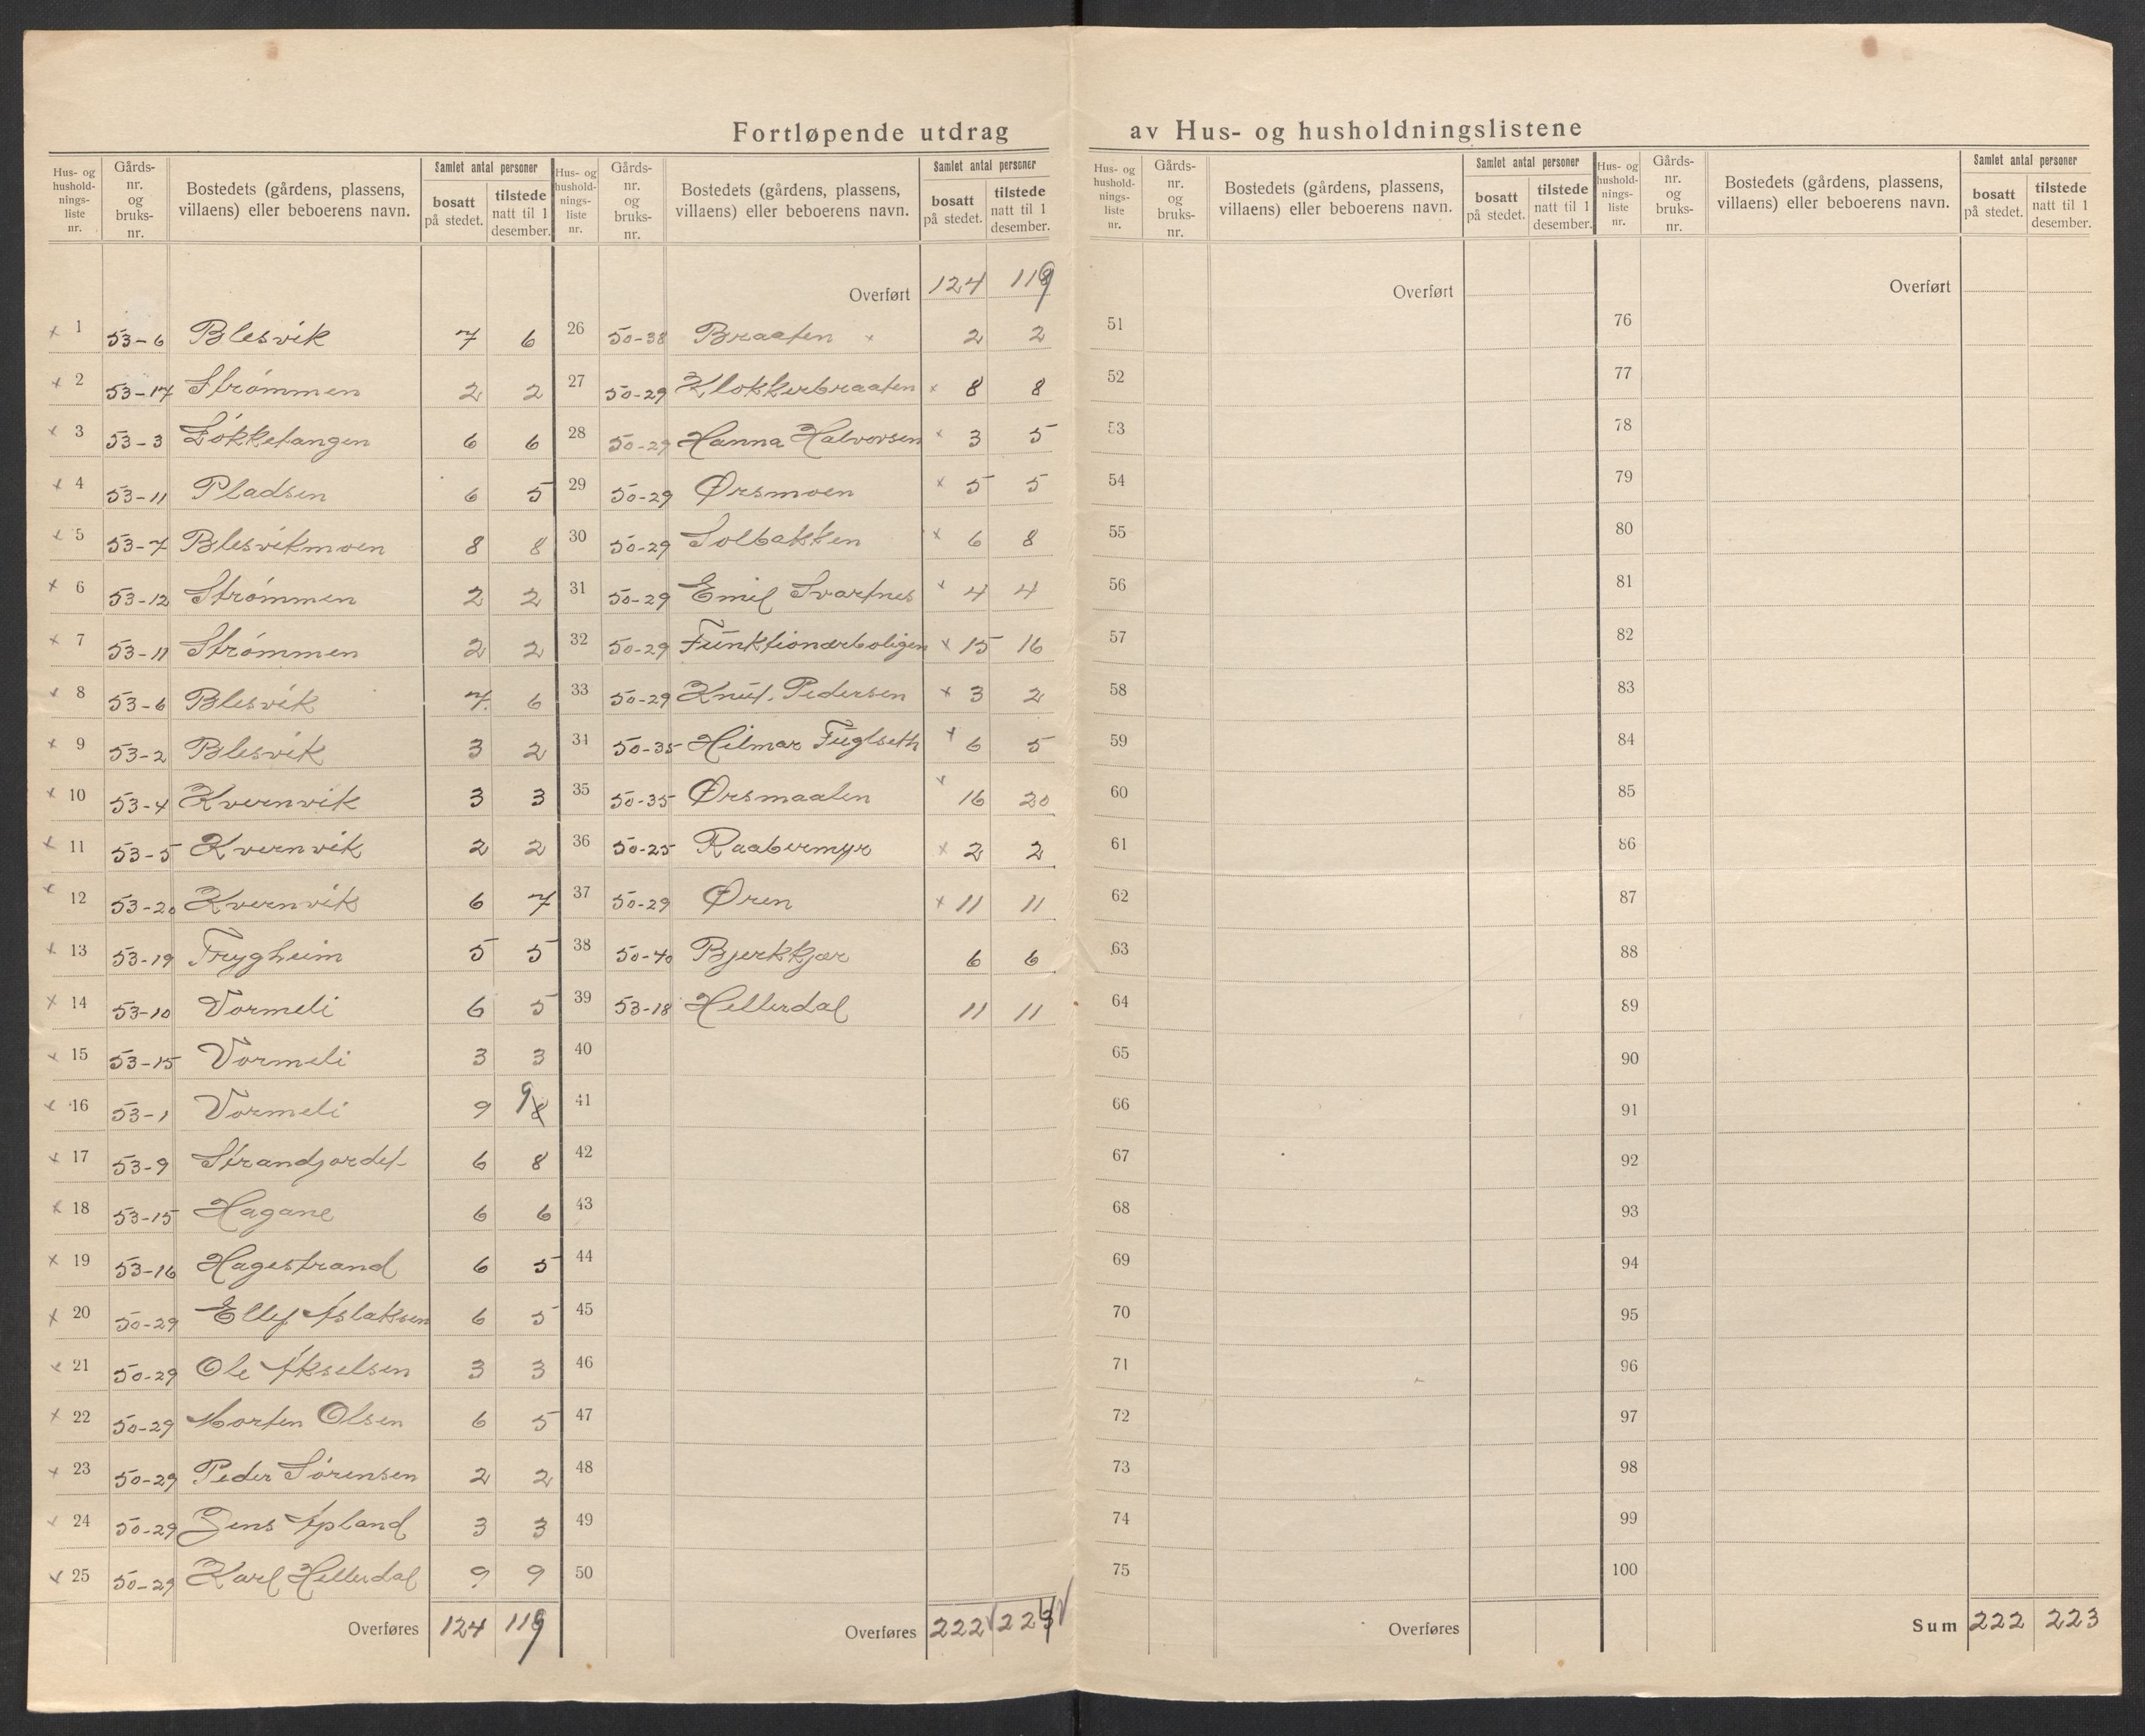 Fortløpende utdrag av Hus- og husholdningslistene
Hus- og hushold-nings-liste nr. | Gårds-nr. og bruks-nr. | Bostedets (gårdens, plassens, villaens) eller beboerens navn. | Samlet antal personer | bosatt på stedet. | tilstede natt til 1 desember.
1 53-6 Blesvik 7 6
2 53-17 Strømmen 2 2
3 53-3 Løkketangen 6 6
4 53-11 Pladsen 6 5
5 53-7 Blesvikmoen 8 8
6 53-12 Strømmen 2 2
7 53-11 Strømmen 2 2
8 53-6 Blesvik 7 6
9 53-2 Blesvik 3 2
10 53-4 Kvernvik 3 3
11 53-5 Kvernvik 2 2
12 53-20 Kvernvik 6 7
13 53-19 Trygheim 5 5
14 53-10 Vormeli 6 5
15 53-15 Vormeli 3 3
16 53-1 Vormeli 9 9
17 53-9 Strandjordet 6 8
18 53-15 Hagane 6 6
19 53-16 Hagestrand 6 5
20 50-29 Ellef Aslaksen 6 5
21 50-29 Ole Akselsen 3 3
22 50-29 Morten Olsen 6 5
23 50-29 Peder Sørensen 2 2
24 50-29 Jens Apland 3 3
25 50-29 Karl Hellerdal 9 9
Overføres 124 119
Hus- og hushold-nings-liste nr. | Gårds-nr. og bruks-nr. | Bostedets (gårdens, plassens, villaens) eller beboerens navn. | Samlet antal personer | bosatt på stedet. | tilstede natt til 1 desember.
Overført 124 119
26 50-38 Braaten 2 2
27 50-29 Klokkerbraaten 8 8
28 50-29 Hanna Halvorsen 3 5
29 50-29 Ørsmoen 5 5
30 50-29 Solbakken 6 8
31 50-29 Emil Svartnes 4 4
32 50-29 Funktionærboligen 15 16
33 50-29 Knut Pedersen 3 2
34 50-35 Hilmar Fuglseth 6 5
35 50-35 Ørsmaalen 16 20
36 50-25 Raabermyr 2 2
37 50-29 Øren 11 11
38 50-40 Bjerkkjær 6 6
39 53-18 Hellerdal 11 11
40
41
42
43
44
45
46
47
48
49
50
Overføres 222 224
Hus- og hushold-nings-liste nr. | Gårds-nr. og bruks-nr. | Bostedets (gårdens, plassens, villaens) eller beboerens navn. | Samlet antal personer | bosatt på stedet. | tilstede natt til 1 desember.
Overført
51
52
53
54
55
56
57
58
59
60
61
62
63
64
65
66
67
68
69
70
71
72
73
74
75
Overføres
Hus- og hushold-nings-liste nr. | Gårds-nr. og bruks-nr. | Bostedets (gårdens, plassens, villaens) eller beboerens navn. | Samlet antal personer | bosatt på stedet. | tilstede natt til 1 desember.
Overført
76
77
78
79
80
81
82
83
84
85
86
87
88
89
90
91
92
93
94
95
96
97
98
99
100
Sum 222 223